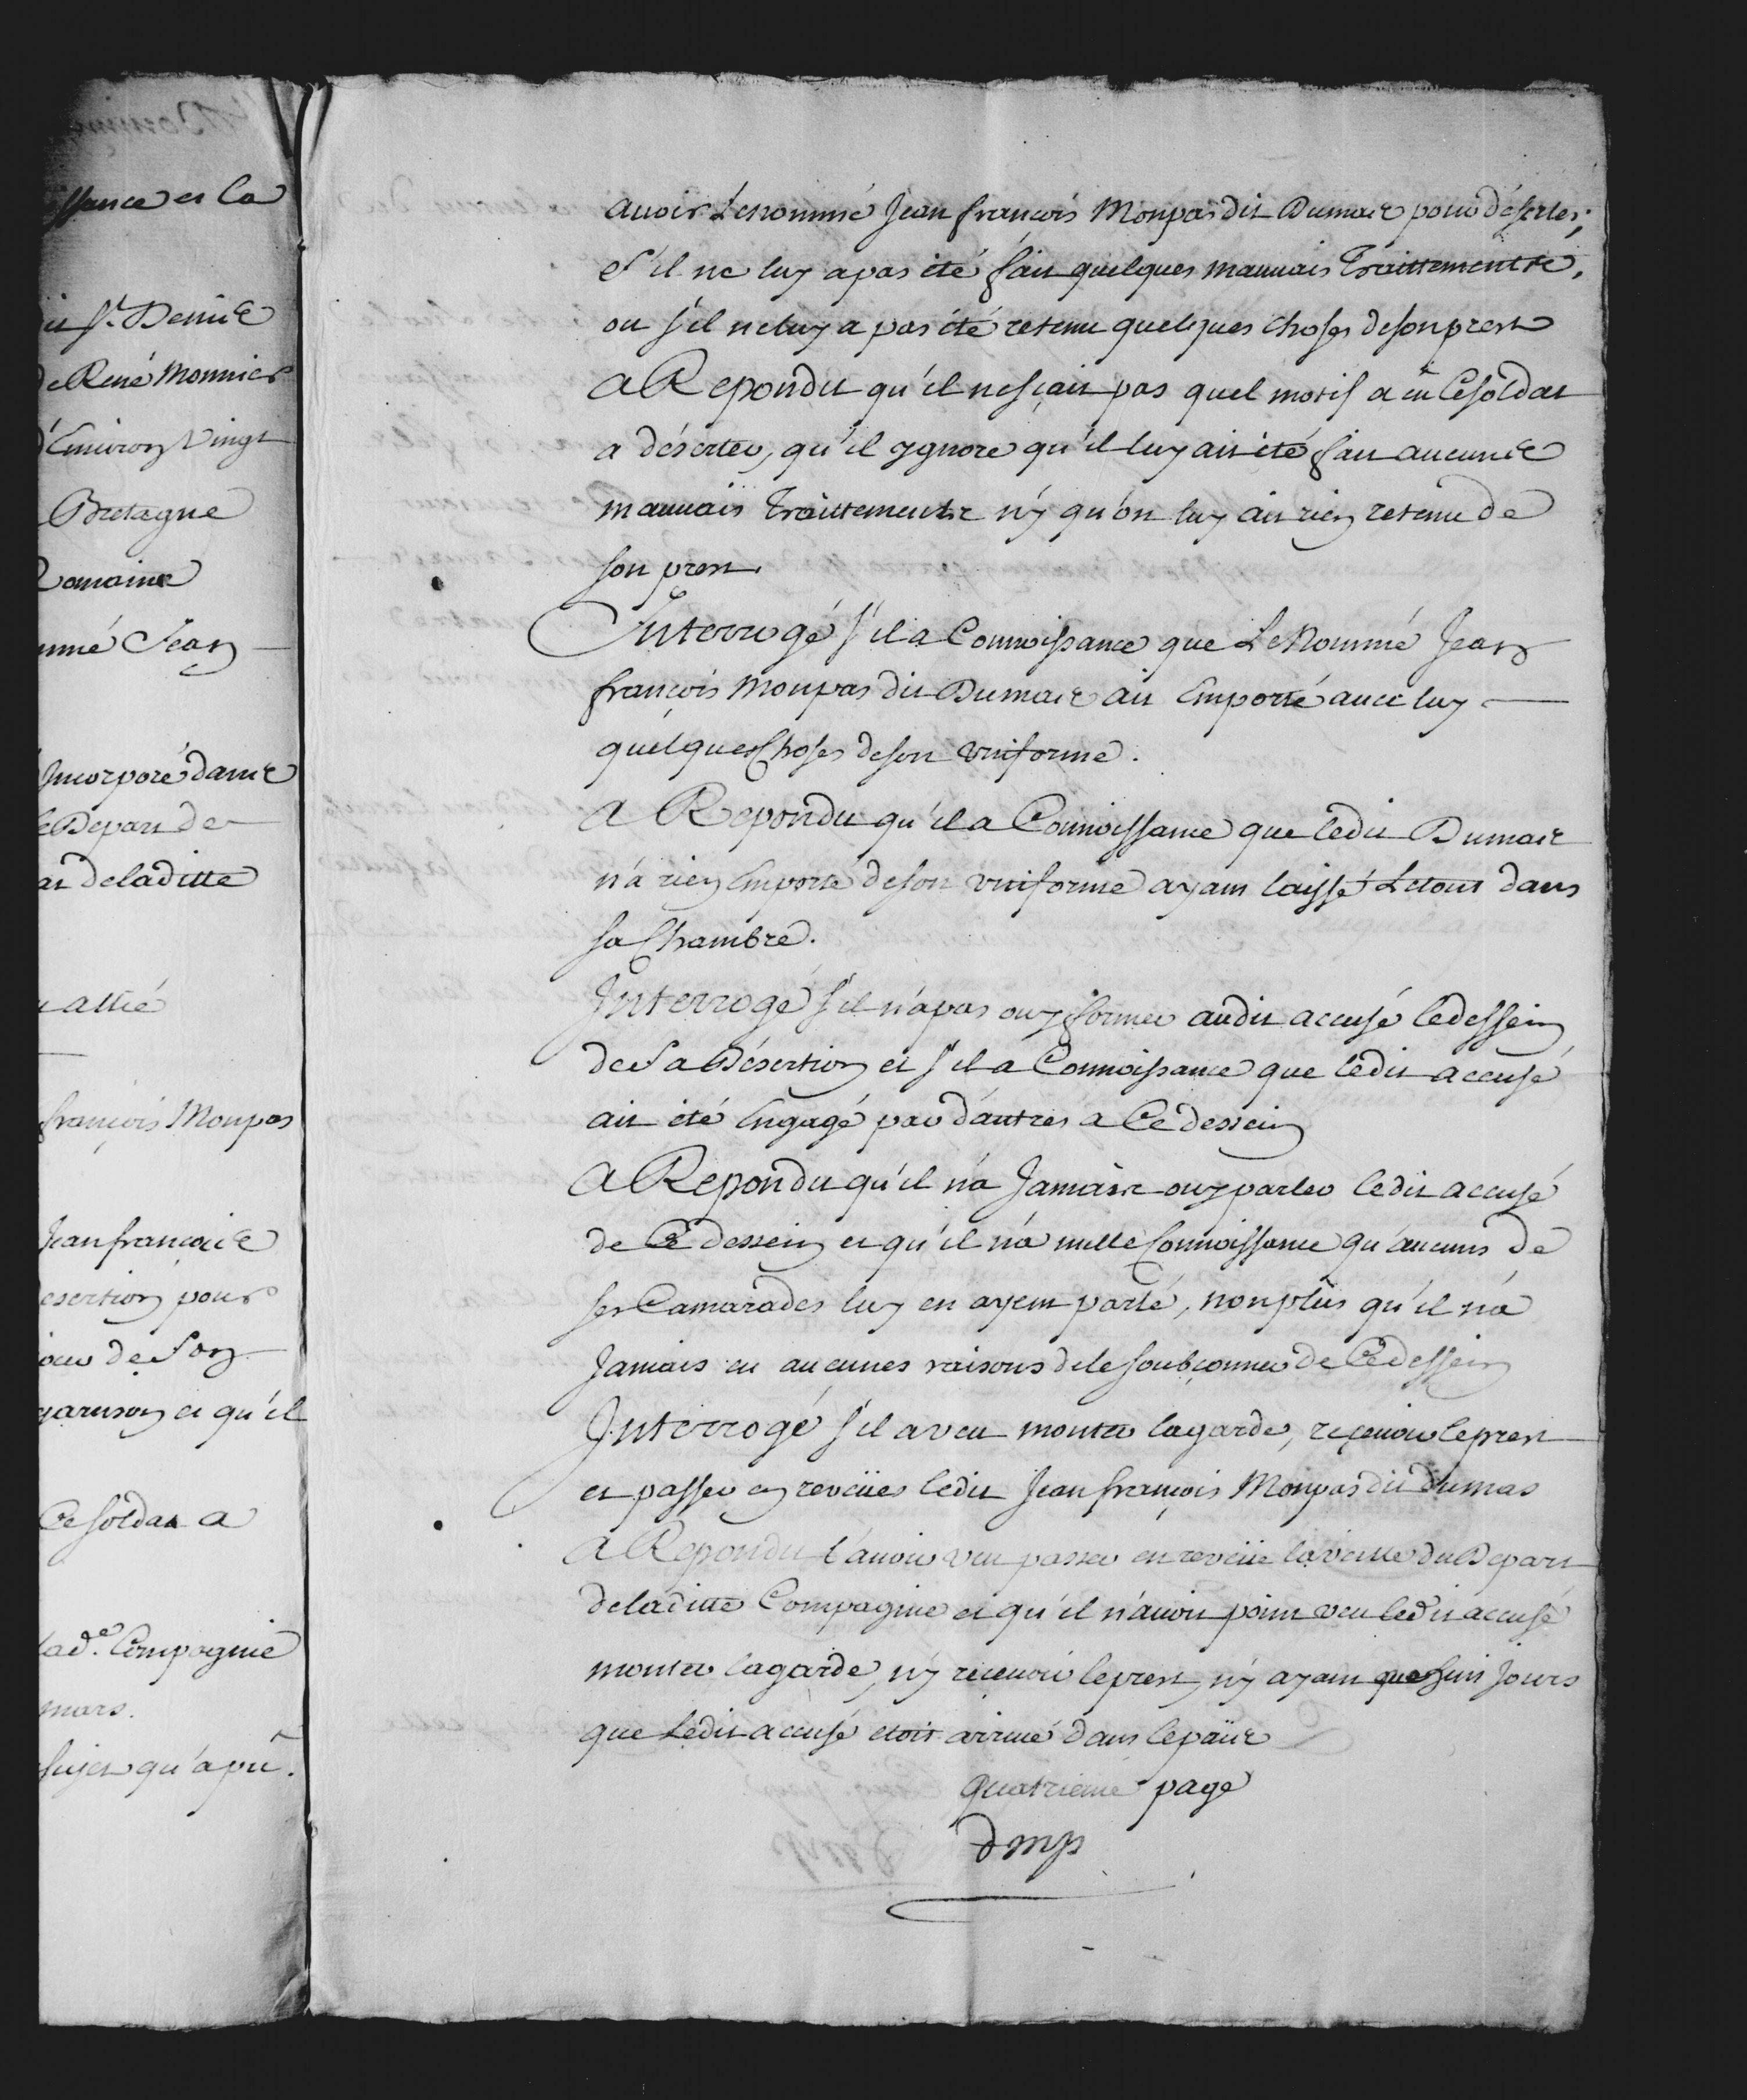 ssance et la
St. Denis
de René Monnier
d'Environ Vingt
Bretagne
Romaine
mmé Jean
Incorporé dans
le Depart de
deladitte
allié
françois Monpas
Jean francois
esertion pour
de Son
garnison et qu'il
Ce soldat a
lade. Compagnie
mars.
sujet qu'a pu
avoir Lenommé Jean francois Monpas dit Dumas pour déserter,
s'il ne luy a pas été fait quelques mauvais Traittements,
ou s'il neluy a pas été retenu quelques choses deson prest
A Repondu qu'il nesçait pas quel motif a eu Cesoldat
a déserter, qu'il ygnore qu'il luy ait été fait aucuns
mauvais Traittements n'y qu'on luy ait rien retenu de
son prest.
Interrogé s'il a Connoissance que LeNommé Jean
françois Monpas dit Dumas ait Emporté avec luy
quelques Choses deson uniforme.
A Repondu qu'il a Connoissance que ledit Dumas
n'a rien Emporté deson uniforme ayant laissé Letout dans
sa Chambre.
Interrogé s'il n'a pas ouy former audit accusé ledessein
de Sa Désertion et s'il a Connoissance que ledit accusé
ait été Engagé par d'autres a Ce dessein
A Repondu qu'il n'a Jamais ouy parler ledit accusé
de Ce dessein et qu'il n'a nulle Connoissance qu'aucuns de
ses Camarades luy en ayent parlé, non plus qu'il n'a
Jamais eu aucunes raisons dele soubçonner de Ce dessein
Interrogé s'il a veu monter lagarde, reçevoir leprest
et passer en reveües ledit Jean françois Monpas dit dumas
A Repondu l'avoir veu passer en reveüe la veille du Depart
deladitte Compagnie et qu'il n'avoit point veu ledit accusé
monter lagarde, n'y recevoir leprest, n'y ayant que huit Jours
que Ledit accusé etoit arrivé dans lepaïs
quatrieme page
dmp